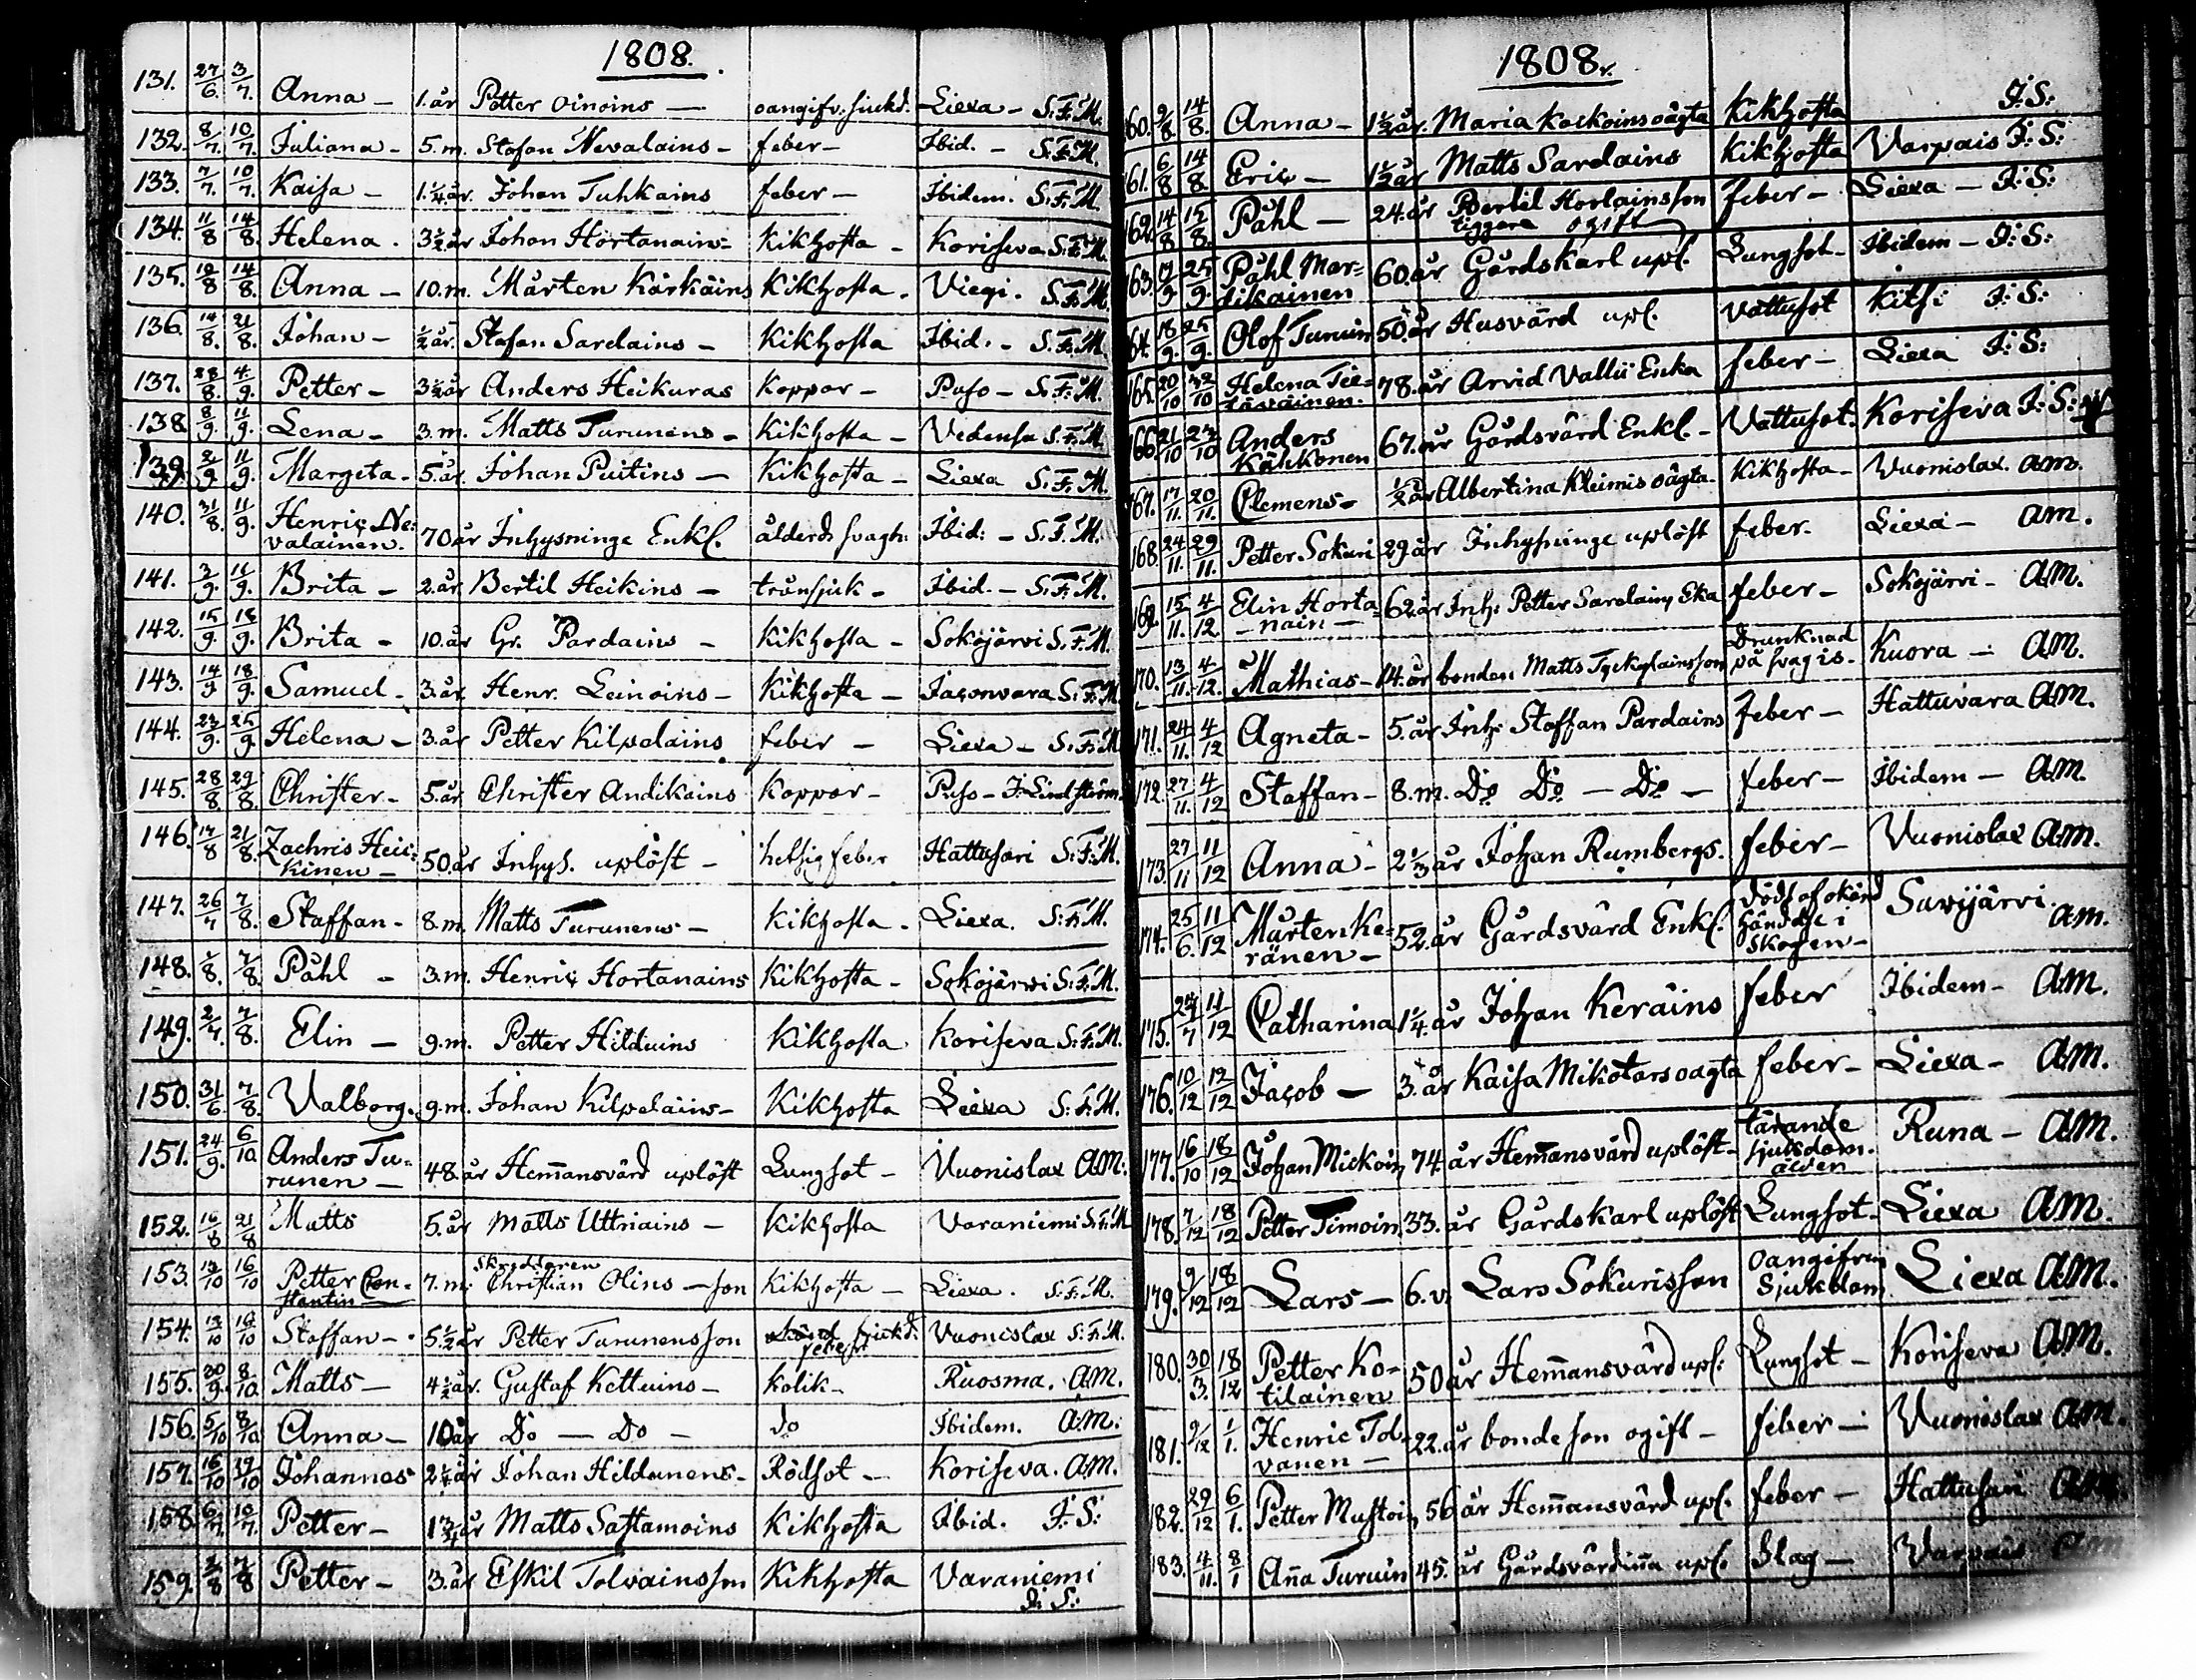 1808.
131. 27/6. 3/7. Anna — 1. år Petter Oinoins — oangifv. siukd. Liexa — S:F:M.
132. 8/7. 10/7. Juliana — 5. m. Stafan Nevalains — feber — Ibid. — S:F:M.
133. 7/7. 10/7. Kaisa — 1.¼ år. Johan Tuhkains feber — Ibidem. S:F:M.
134. 11/8 14/8. Helena. 3½ år Johan Hortanains — Kikhosta — Koriseva S:F:M.
135. 12/8 14/8. Anna — 10. m. Mårten Kärkäins Kikhosta. Viegi. S:F:M.
136. 14/8. 21/8. Johan — ½ år. Stafan Sardains — Kikhosta Ibid. — S:F:M.
137. 28/8. 4/9. Petter — 3½ år Anders Heikuras Koppor — Puso — S:F:M.
138 8/9. 11/9. Lena — 3. m. Matts Turunens — Kikhosta — S:F:M.
139. 2/9. 11/9. Margeta. 5. år. Johan Puitins — Kikhosta — Liexa S:F:M.
140. 31/8. 11/9. Henric Ne-
valainen. 70 år Inhysninge Enkl. ålderd. svagh. Ibid: — S:F:M.
141. 3/9. 11/9. Brita — 2. år Bertil Heikins — trånsjuk — Ibid. — S:F:M.
142. 15/9. 18/9. Brita — 10. år Gr. Pardains — Kikhosta — Sokojärvi S:F:M.
143. 14/9 18/9. Samuel. 3. år Henr. Leinoins — Kikhosta — Jaconvara S:F:M
144. 23/9. 25/9 Helena — 3. år Petter Kilpalains feber — Liexa — S:F:M
145. 28/8 29/8. Christer — 5. år Christer Andikains Koppor — Puso — J. Lindström
146. 17/8 21/8. Zachris Hei-
kinen — 50. år Inhys. uplöst — hetsig feber Hattusari S:F:M.
147. 26/7 7/8. Staffan — 8. m. Matts Turunens — Kikhosta. Liexa. S:F:M.
148. 1/8. 7/8. Påhl — 3. m. Henric Hortanains Kikhosta — Sokojärvi S:F:M.
149. 2/7. 7/8. Elin — 9. m. Petter Hilduins Kikhosta Koriseva S:F:M.
150. 31/6. 7/8. Valborg. 9. m. Johan Kilpelains — Kikhosta Liexa S:F:M.
151. 24/9. 6/10 Anders Tu-
runen — 48. år Hem̄ansvärd uplöst Lungsot — Vuonislax A:M:
152. 16/8 21/8 Matts 5. år Matts Uttriains — Kikhosta Varaniemi S:F:M
153. 13/10 16/10 Petter Con-
stantin 7. m. Skreddaren
Christian Olins — son Kikhosta — Liexa. S:F:M.
154. 13/10 16/10 Staffan — 5½ år Petter Turunens son feber Vuonislax S:F:M.
155. 30/9. 8/10. Matts — 4½ år. Gustaf Kettuins — Kolik — Ruosma. A:M.
156. 5/10 8/10 Anna — 10 år Do — Do — do Ibidem. A:M:
157. 16/10 29/10 Johannes 2¼ år Johan Hildunens — Rödsot — Koriseva. A:M.
158. 6/7. 10/7. Petter — 1¾ år Matts Sastamoins Kikhosta Ibid. J:S:
159. 2/8 7/8 Petter — 3. år Eskil Tolvainsson Kikhosta Varaniemi
J:S:
1808.
60. 9/8. 14/8. Anna — 1½ år. Maria Kockoins oägta Kikhosta J:S:
61. 6/8 14/8. Eric — 1½ år Matts Sardains Kikhosta Varpais J:S:
62. 14/8 15/8. Påhl — 24. år Bertil Horlainsson
tiggare ogift feber — Liexa — J:S:
63. 17/9 25/9. Påhl Mar-
dikainen 60. år Gårdskarl upl. Lungsot — Ibidem — J:S:
64. 18/9. 25/9. Olof Turuin 50. år Husvärd upl. Vattusot Kitsi J:S:
165. 20/10 Helena Tie-
täväinen. 78. år Arvid Vallii Enka feber — Liexa J:S:
166. 21/10 23/10 Anders
Kähkönen 67. år Gårdsvärd Enkl. — Vattusot. Koriseva J:S:
167. 17/11. 20/11. Clemens — ½ år Albertina Kleimis oägta. Kikhosta — Vuonislax. A:M.
168. 24/11. 29/11. Petter Sokuri 29. år Inhysninge uplöst feber. Liexa — A:M.
169. 15/11. 4/12. Elin Horta-
nain — 62. år Inh: Petter Sardains Eka feber — Sokojärvi — A:M.
170. 13/11. 4/12. Mathias — 14. år bonden Matts Tyckylainsson Drunknad
på svag is. Kuora — A:M.
171. 24/11. 4/12 Agneta — 5. år Inh: Staffan Pardains feber — Hattuvara A:M.
172. 27/11. 4/12 Staffan — 8. m. Do Do — Do — feber — Ibidem — A:M.
173. 27/11 11/12 Anna — 2⅓ år Johan Rumbergs. feber — Vuonislax A:M.
174. 25/6. 11/12 Mårten Ke-
ränen — 52. år Gårdsvärd Enkl. död af okänd
händelse i
Skogen — Savijärvi. A:M.
175. 24/7 11/12 Catharina 1¼. år Johan Keräins feber Ibidem — A:M.
176. 10/12 12/12 Jacob — 3. år Kaisa Mikotars oägta feber — Liexa — A:M.
177. 16/10 18/12 Johan Mickoin 74 år Hem̄ansvärd uplöst — tärande
sjukdom. Runa — A:M.
178. 7/12 18/12 Petter Timoin 33. år Gårdskarl uplöst Lungsot — Liexa A:M.
179. 9/12 18/12 Lars — 6. v. Lars Sokurisson oangifven
Sjukdom Liexa A:M.
180. 30/3. 18/12 Petter Ko-
tilainen 50 år Hem̄ansvärd upl: Lungsot — Koriseva A:M.
181. 9/12 1/1. Henric Tol-
vanen — 22. år bondeson ogift — feber — Vuonislax A:M.
182. 29/12 6/1. Petter Mustoin 56 år Hem̄ansvärd upl. feber — Hattusari A:M.
183. 4/11. 8/1 An̄a Turuin 45. år Gårdsvärdin̄a upl. Slag — Varpais A:M